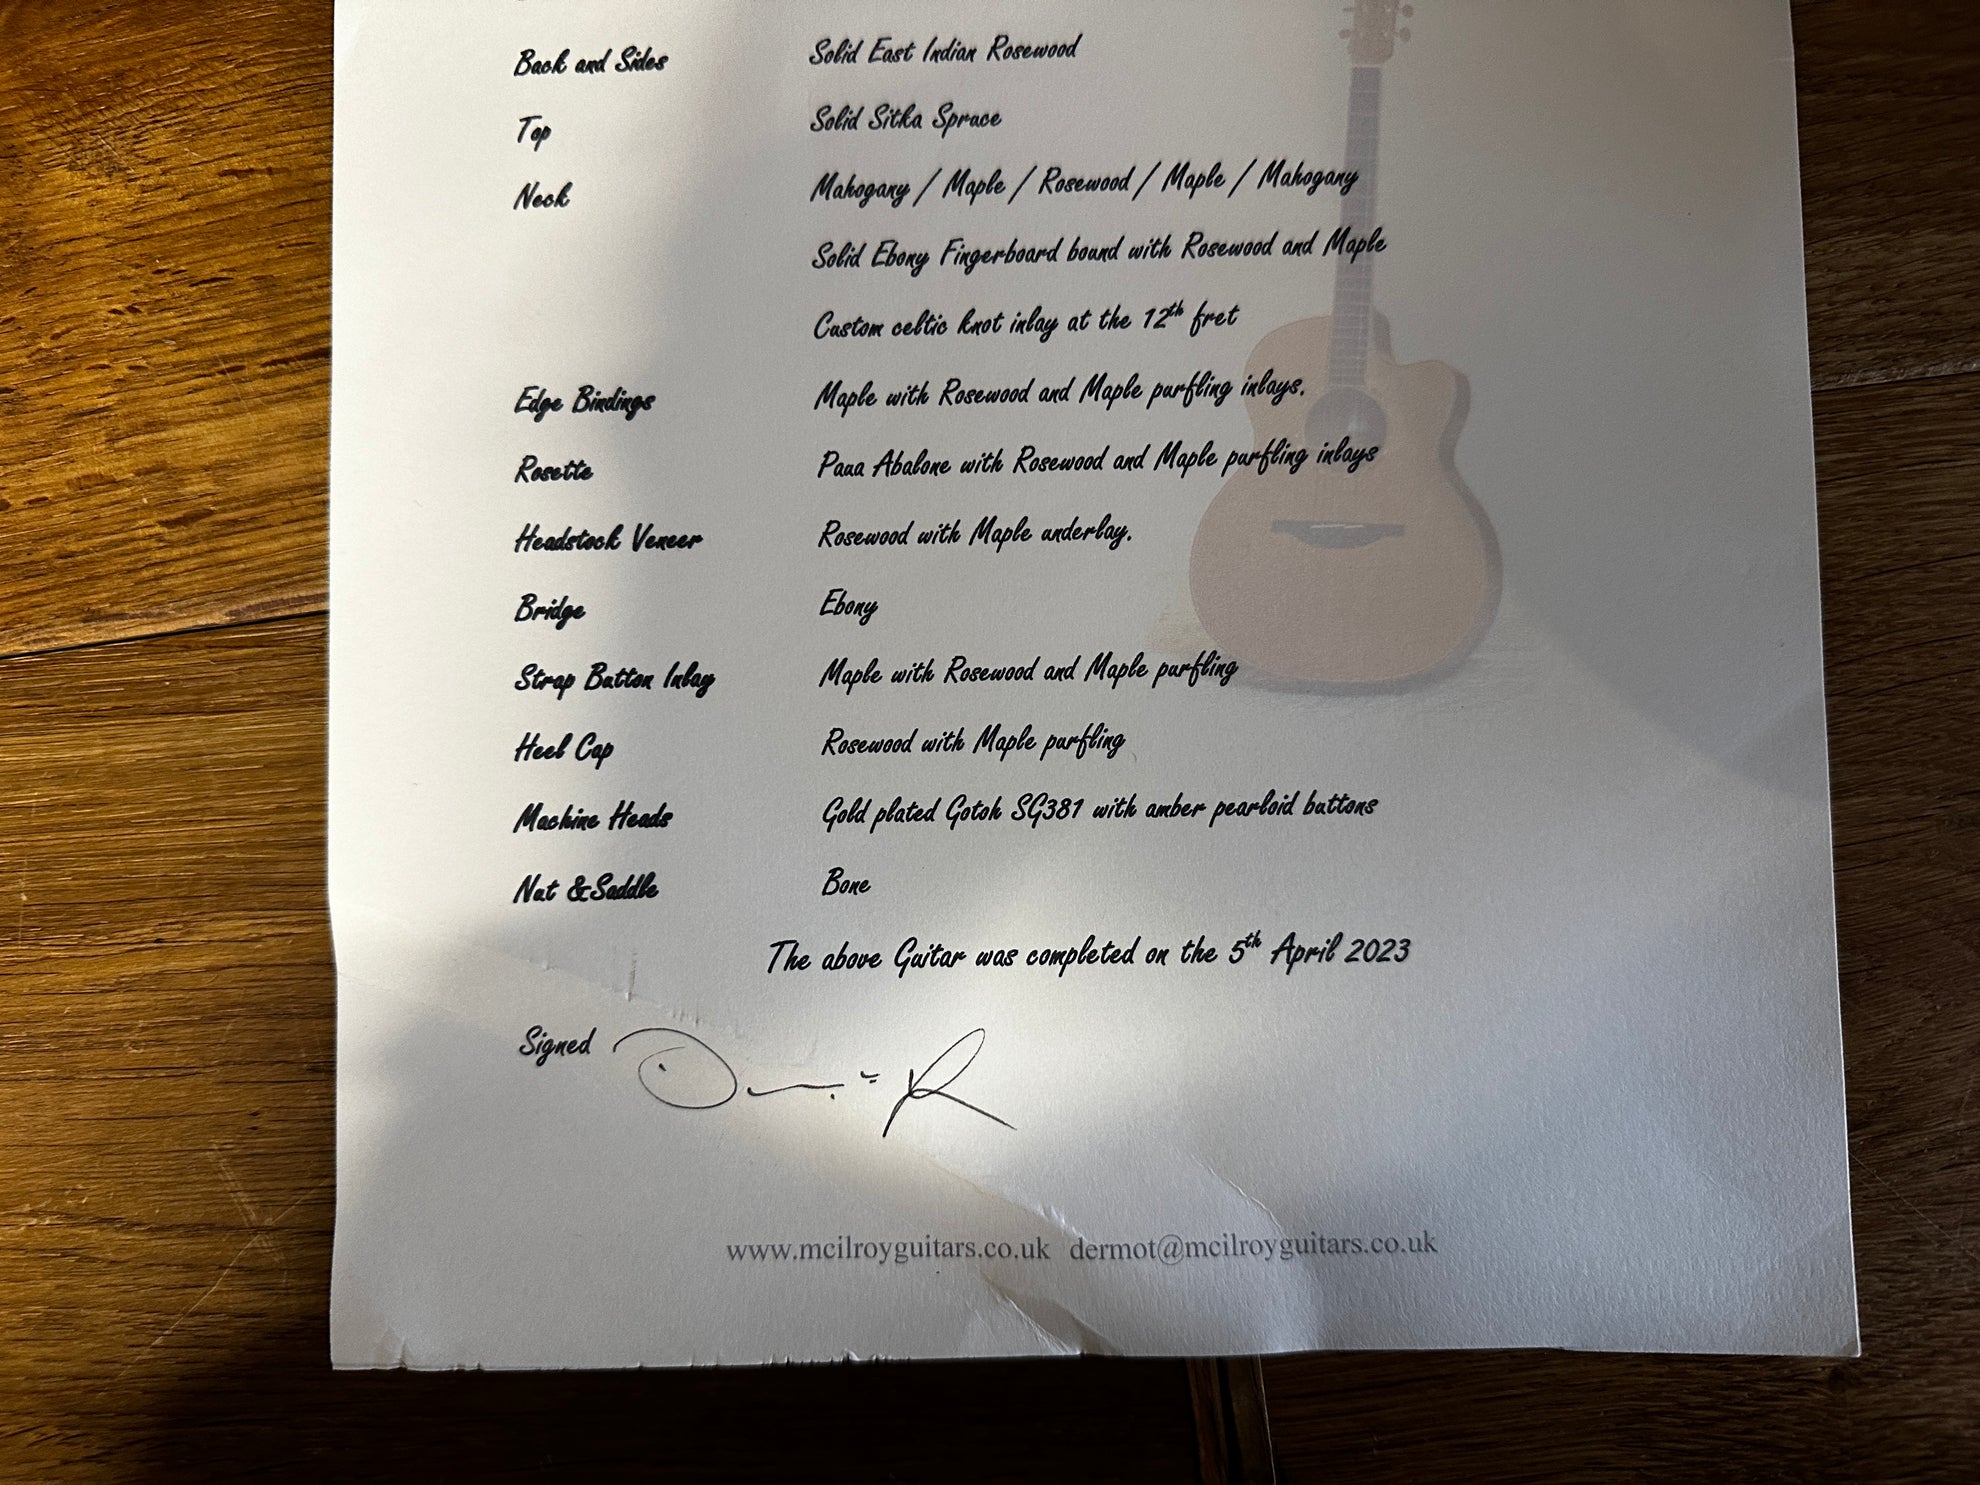 Back and Sides Solid East Indian Rosewood
Top Solid Sitka Spruce
Neck Mahogany / Maple / Rosewood / Maple / Mahogany
Solid Ebony Fingerboard bound with Rosewood and Maple
Custom celtic knot inlay at the 12th fret
Edge Bindings Maple with Rosewood and Maple purfling inlays.
Rosette Paua Abalone with Rosewood and Maple purfling inlays
Headstock Veneer Rosewood with Maple underlay.
Bridge Ebony
Strap Button Inlay Maple with Rosewood and Maple purfling
Heel Cap Rosewood with Maple purfling
Machine Heads Gold plated Gotoh SG381 with amber pearloid buttons
Nut &Saddle Bone
The above Guitar was completed on the 5th April 2023
Signed
www.mcilroyguitars.co.uk dermot@mcilroyguitars.co.uk